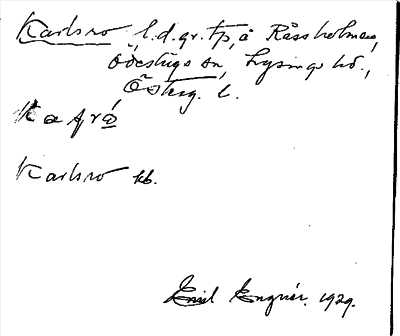 Karlsro, l.d.gr. tp, å Råssholmen,
Ödestugu sn, Lysings hd.,
Österg. l.
Kafró
Karlsro kb.
Emil Engnér. 1929.